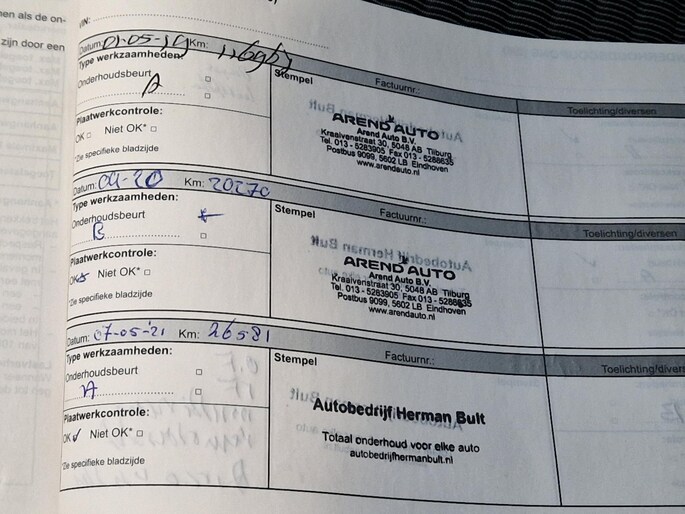 nen als de on-
zijn door een
VIN:
Datum: 01-05-19 Km:
Type werkzaamheden:
Onderhoudsbeurt
A
Plaatwerkcontrole:
OK Niet OK*
*Zie specifieke bladzijde
Stempel Factuurnr.:
AREND AUTO
Arend Auto B.V.
Kraaivenstraat 30, 5048 AB Tilburg
Tel. 013 - 5283905 Fax 013 - 5288635
Postbus 9099, 5602 LB Eindhoven
www.arendauto.nl
Toelichting/diversen
Datum: 04-20 Km: 20270
Type werkzaamheden:
Onderhoudsbeurt
B
Plaatwerkcontrole:
OK Niet OK*
*Zie specifieke bladzijde
Stempel Factuurnr.:
AREND AUTO
Arend Auto B.V.
Kraaivenstraat 30, 5048 AB Tilburg
Tel. 013 - 5283905 Fax 013 - 5288635
Postbus 9099, 5602 LB Eindhoven
www.arendauto.nl
Toelichting/diversen
Datum: 07-05-'21 Km: 26581
Type werkzaamheden:
Onderhoudsbeurt
A
Plaatwerkcontrole:
OK Niet OK*
*Zie specifieke bladzijde
Stempel Factuurnr.:
Autobedrijf Herman Bult
Totaal onderhoud voor elke auto
autobedrijfhermanbult.nl
Toelichting/diversen